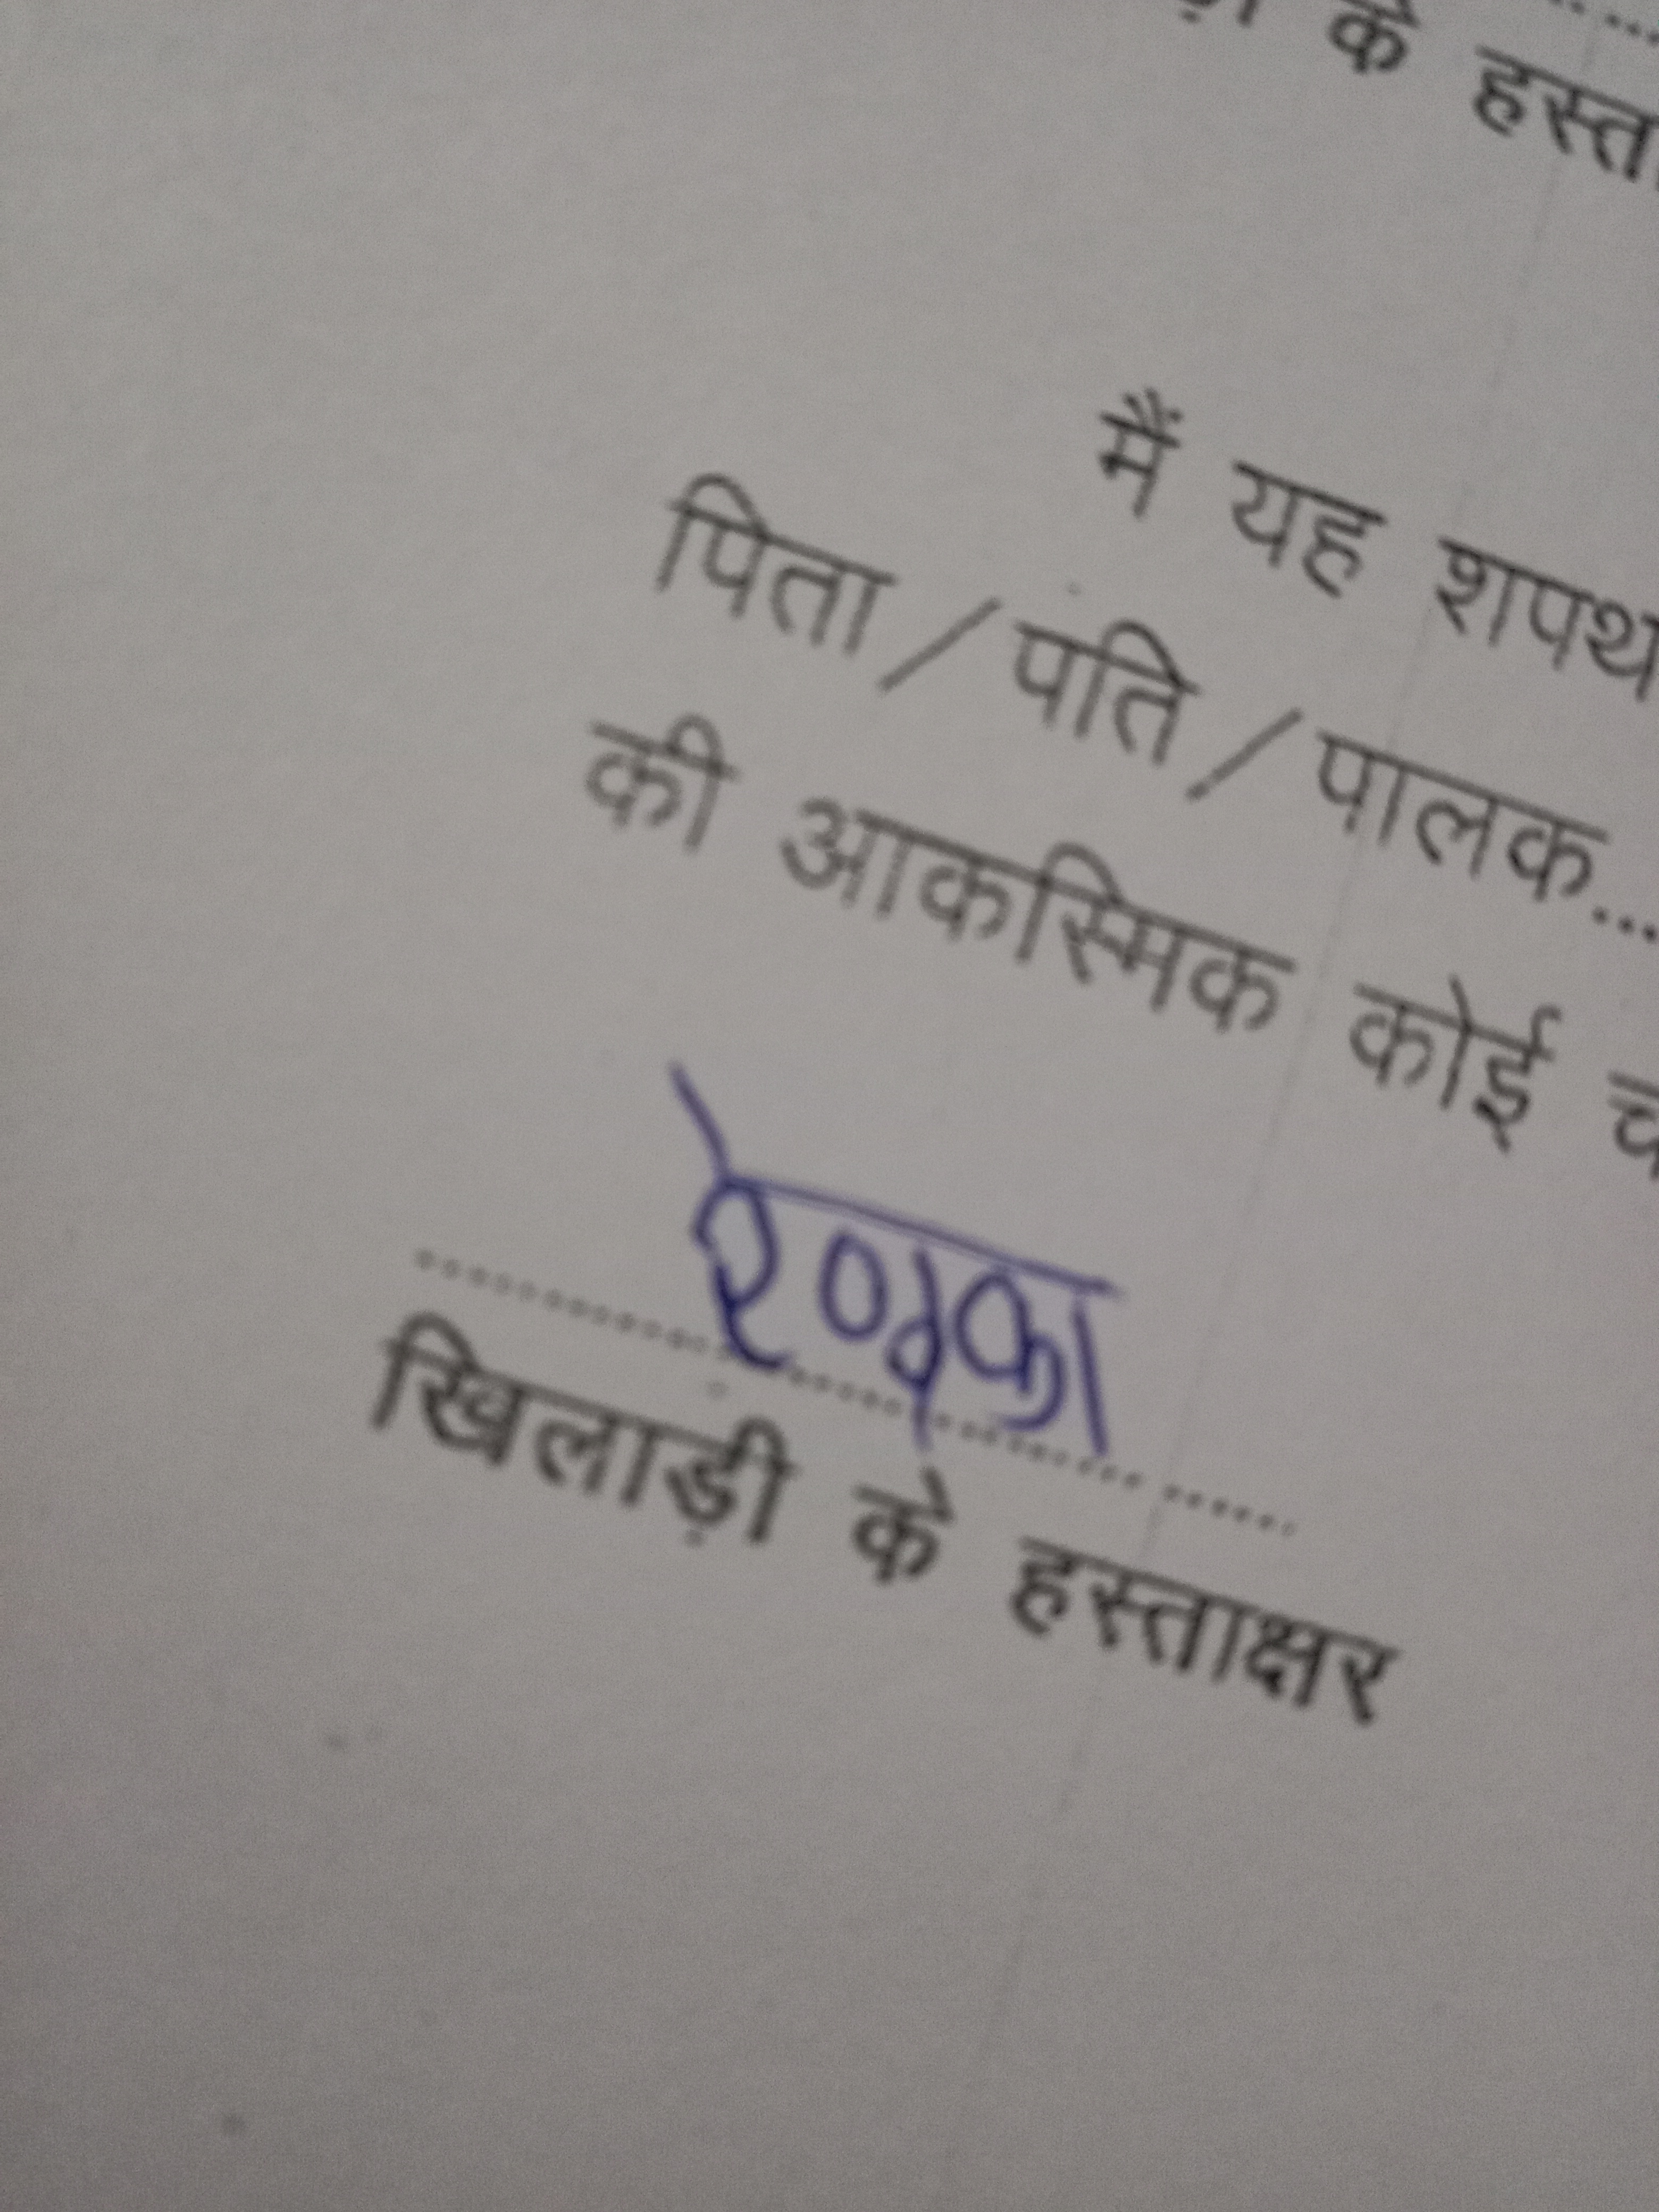 के हस्ता
मैं यह शपथ
पिता / पति / पालक...
की आकस्मिक कोई
रेणुका
खिलाड़ी के हस्ताक्षर